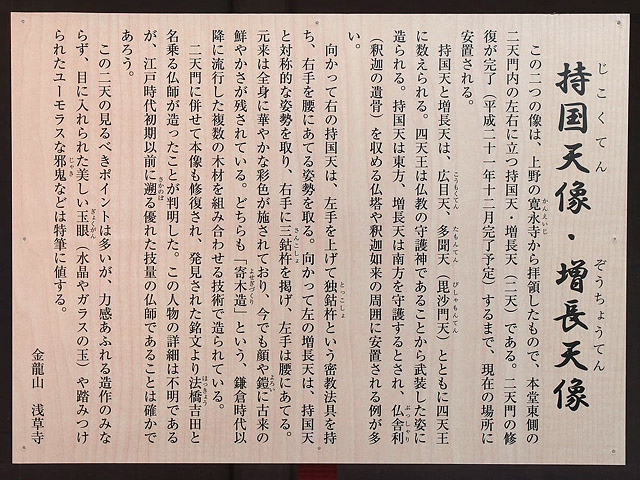 持国天像・増長天像
じこくてん ぞうちょうてん
この二つの像は、上野の寛永寺から拝領したもので、本堂東側の
かんえいじ
二天門内の左右に立つ持国天・増長天（二天）である。二天門の修
復が完了（平成二十一年十二月完了予定）するまで、現在の場所に
安置される。
持国天と増長天は、広目天、多聞天（毘沙門天）とともに四天王
こうもくてん たもんてん びしゃもんてん
に数えられる。四天王は仏教の守護神であることから武装した姿に
造られる。持国天は東方、増長天は南方を守護するとされ、仏舎利
ぶっしゃり
（釈迦の遺骨）を収める仏塔や釈迦如来の周囲に安置される例が多
い。
向かって右の持国天は、左手を上げて独鈷杵という密教法具を持
とっこしょ
ち、右手を腰にあてる姿勢を取る。向かって左の増長天は、持国天
と対称的な姿勢を取り、右手に三鈷杵を掲げ、左手は腰にあてる。
さんこしょ
元来は全身に華やかな彩色が施されており、今でも顔や鎧に古来の
よろい
鮮やかさが残されている。どちらも「寄木造」という、鎌倉時代以
よせぎづくり
降に流行した複数の木材を組み合わせる技術で造られている。
二天門に併せて本像も修復され、発見された銘文より法橋吉田と
ほっきょう
名乗る仏師が造ったことが判明した。この人物の詳細は不明である
が、江戸時代初期以前に遡る優れた技量の仏師であることは確かで
さかのぼ
あろう。
この二天の見るべきポイントは多いが、力感あふれる造作のみな
らず、目に入れられた美しい玉眼（水晶やガラスの玉）や踏みつけ
ぎょくがん
られたユーモラスな邪鬼などは特筆に値する。
じゃき
金龍山 浅草寺